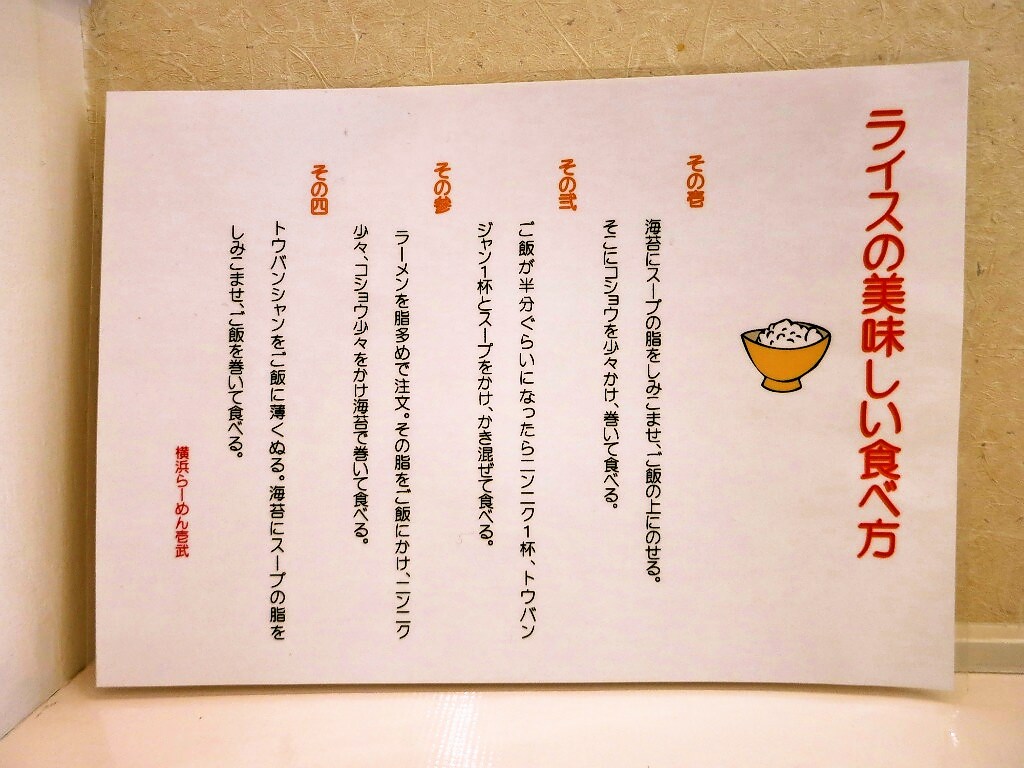 ライスの美味しい食べ方
その壱
海苔にスープの脂をしみこませ、ご飯の上にのせる。
そこにコショウを少々かけ、巻いて食べる。
その弐
ご飯が半分ぐらいになったらニンニク1杯、トウバン
ジャン1杯とスープをかけ、かき混ぜて食べる。
その参
ラーメンを脂多めで注文。その脂をご飯にかけ、ニンニク
少々、コショウ少々をかけ海苔で巻いて食べる。
その四
トウバンジャンをご飯に薄くぬる。海苔にスープの脂を
しみこませ、ご飯を巻いて食べる。
横浜らーめん壱武